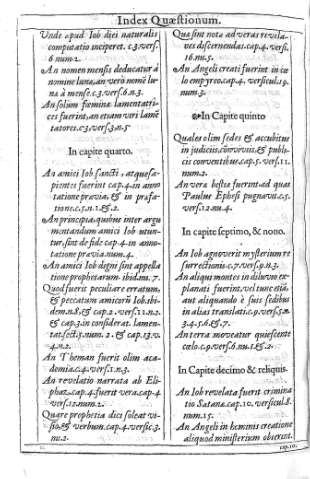 Index Quæstionum.
Vnde apud Iob dies naturalis
computatio inciperet. c.3.vers.
6.num.2.
An nomen mensis deducatur à
nomine lunæ, an verò nomē lu-
næ à mense.c.3.vers.6.n.3.
An solùm fœminæ lamentatri-
ces fuerint, an etiam veri lamē
tatores.c.3.vers.3.n.5
In capite quarto.
An amici Iob sancti, atque sa-
pientes fuerint cap.4.in anno
tatione præuia, & in præfa-
tione.c.5.n.1.&2.
An principia, quibus inter argu
mentandum amici Iob utun-
tur, sint de fide cap.4.in anno-
tatione præuia.num.4.
An amici Iob digni sint appella
tione prophetarum ibid.nu.7.
Quod fuerit peculiare erratum,
& peccatum amicorū Iob.ibi-
dem.n.8.& cap.2.vers.11.n.2.
& cap.3.in considerat. lamen-
tat.sect.5.num.2. & cap.13.v.
4.n.2.
An Theman fuerit olim aca-
demia.c.4.vers.1.n.3.
An reuelatio narrata ab Eli-
phaz.cap.4.fuerit vera.cap.4
vers.12.num.2.
Quare prophetia dici soleat vi-
sio,& verbum.cap.4.versic.3.
nu.2.
Quæ sint nota ad veras reuela-
ues discernendas.cap.4.versi.
16.nu.5.
An Angeli creati fuerint in cœ
lo empyreo.cap.4.versicul.19.
num.3.
In Capite quinto
Quales olim sedes & accubitus
in iudiciis, cōuiuiis,& publi-
cis conuentibus cap.5.vers.11.
num.2.
An vera bestia fuerint ad quas
Paulus Ephesi pugnauit.c.5.
vers.12.nu.4.
In capite septimo, & nono.
An Iob agnouerit mysterium re
surrectionis.c.7.vers.9.n.3.
An aliqui montes in diluuio ex-
planati fuerint, vel tunc etiā,
aut aliquando è suis sedibus
in alias translati.c.9.vers.5.n.
3.4.5.6.&7.
An terra moueatur quiescente
cœlo.c.9.vers.6.nu.1.&2.
In Capite decimo & reliquis.
An Iob reuelata fuerit crimina
tio Satanæ.cap.10.versicul.8.
num.15.
An Angeli in hominis creatione
aliquod ministerium obierint.
cap.10.